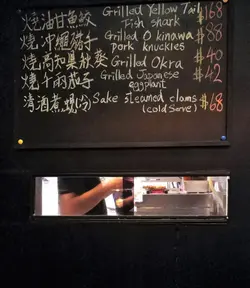 燒油甘魚鮫 Grilled Yellow Tail $168
Fish shark
燒沖繩豬手 Grilled Okinawa $88
pork knuckles
燒高知県秋葵 Grilled Okra $40
燒午雨茄子 Grilled Japanese $42
eggplant
清酒煮蜆(冷) Sake steamed clams $68
(cold serve)